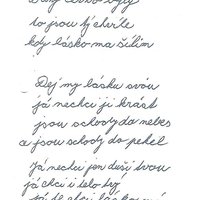 to jsou ty chvíle
kdy lásko má šílím
Dej my lásku svou
já nechci ji krást
jsou schody do nebes
a jsou schody do pekel
Já nechci jen duši tvou
já chci i telo tvý